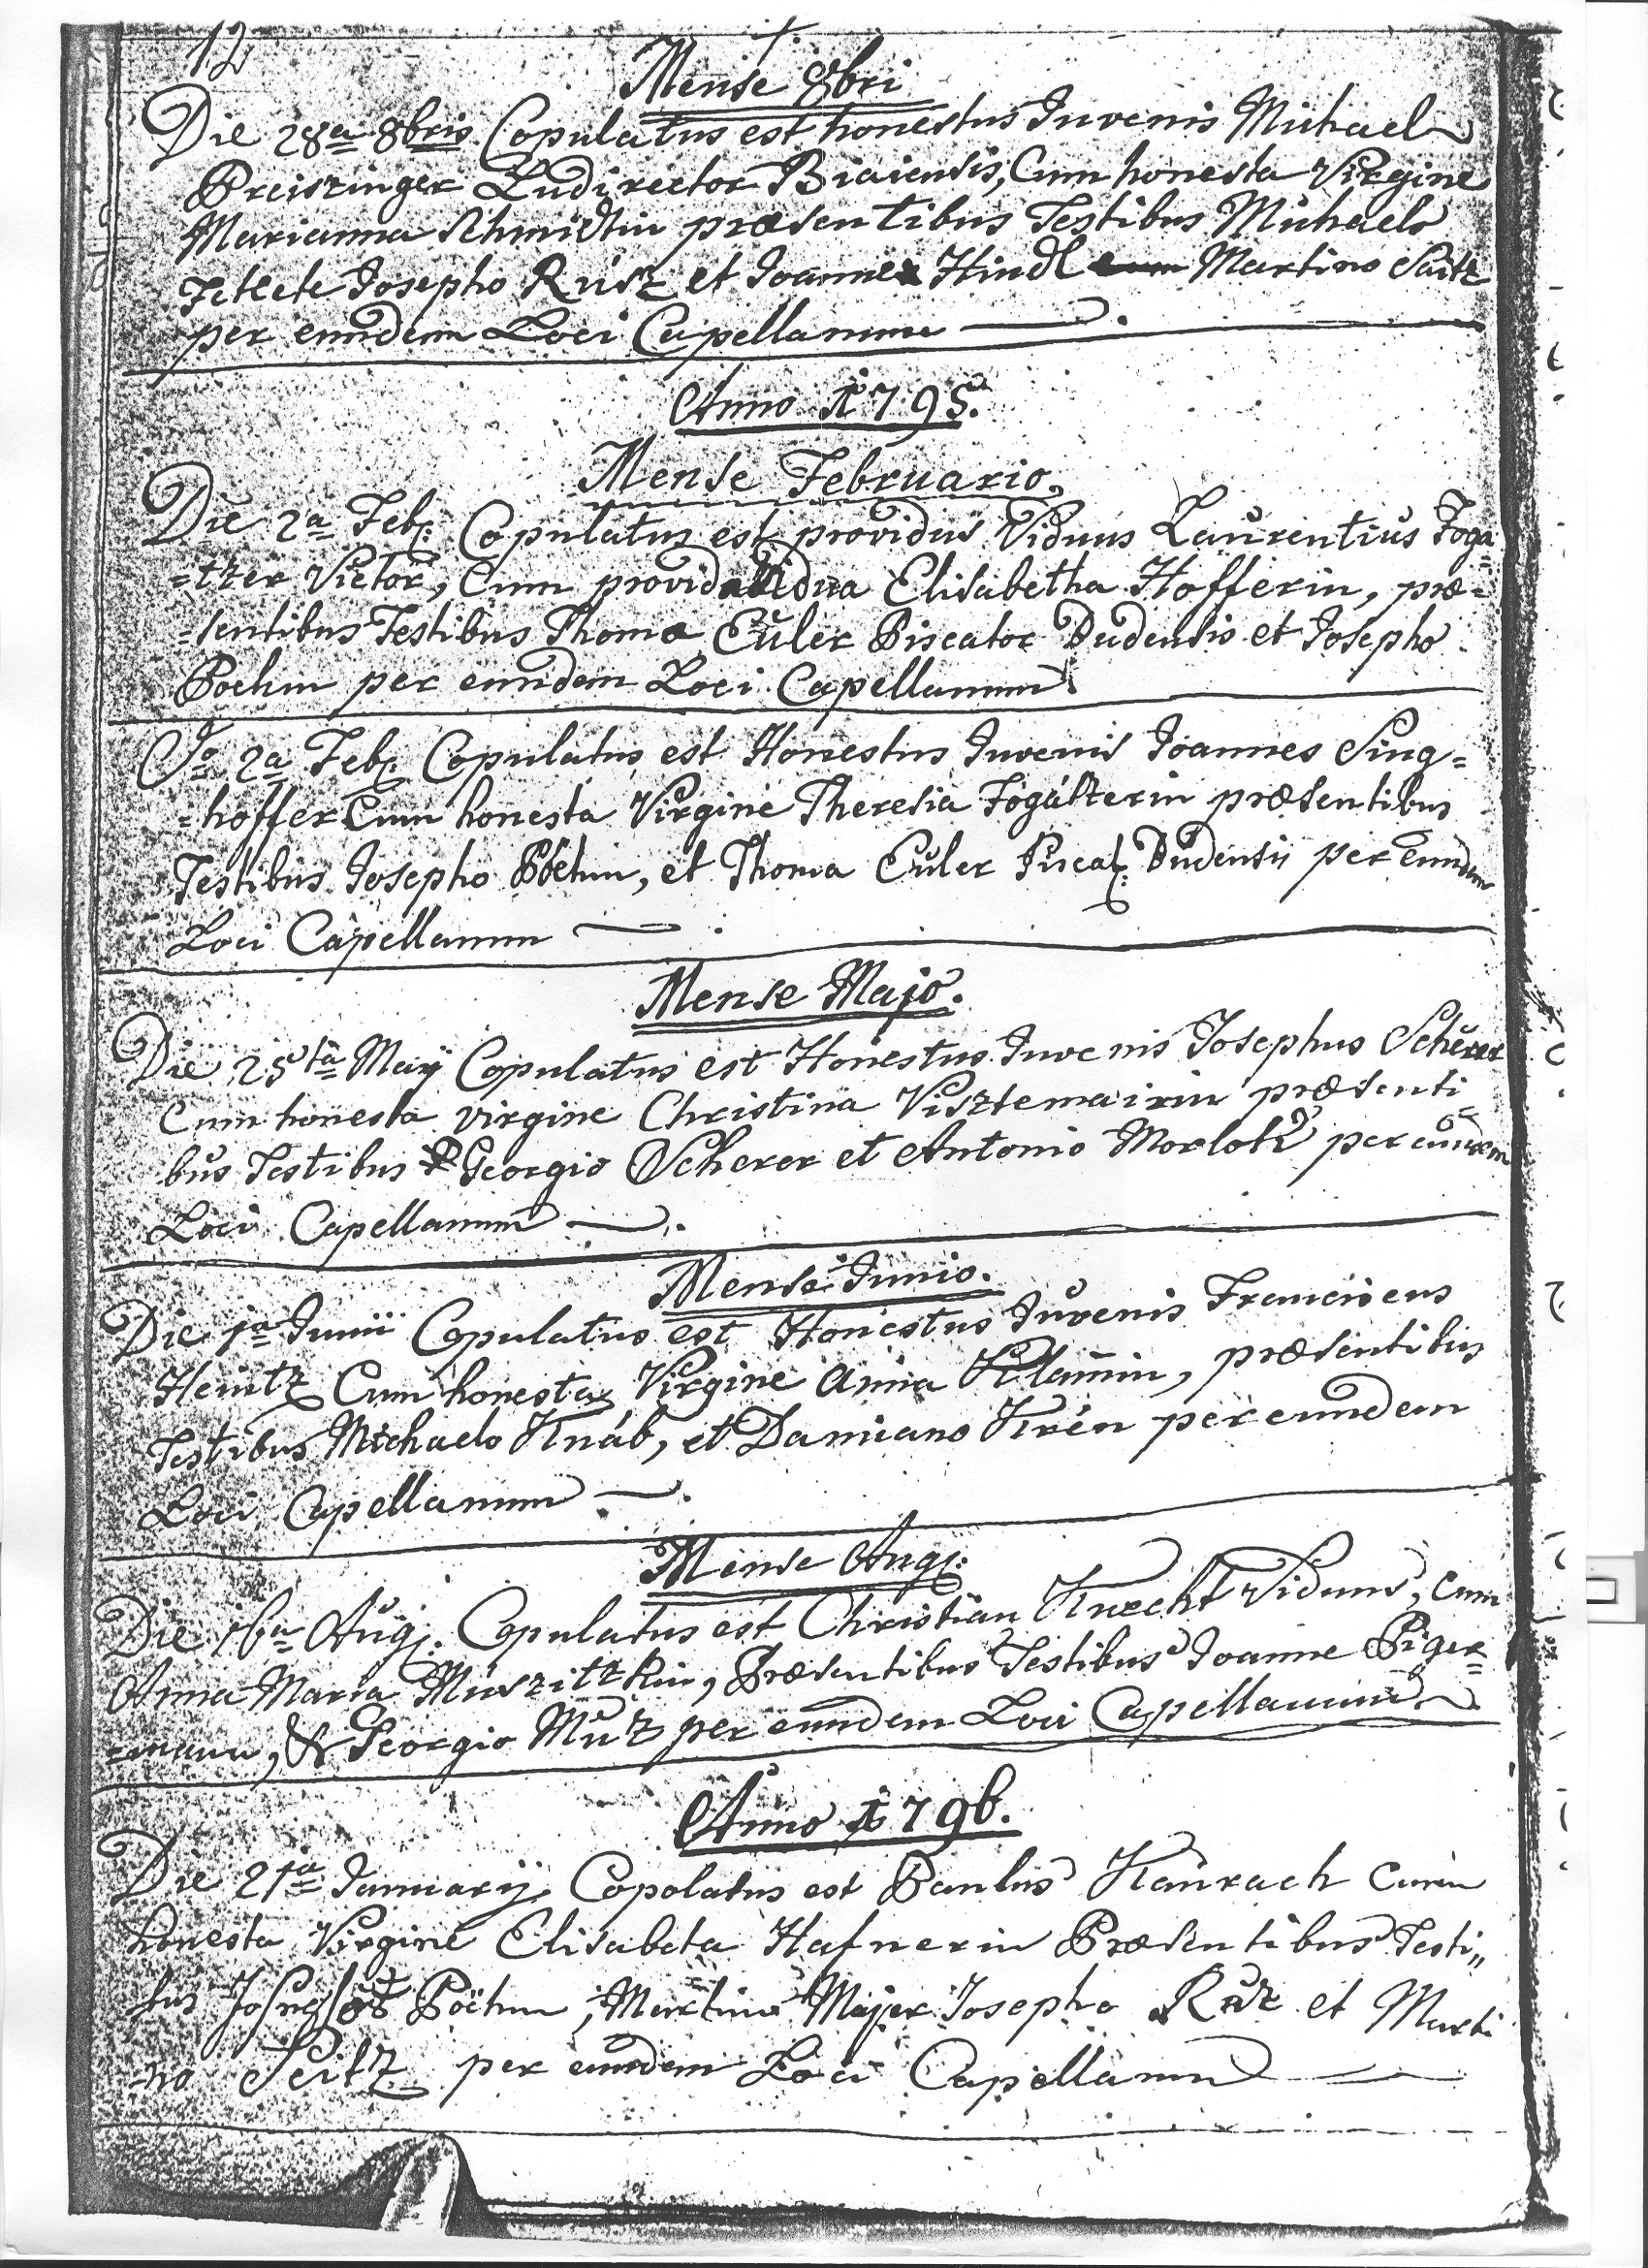 12
Mense 8bri
Die 28a 8bris Copulatus est honestus Juvenis Michael
Preiszinger Ludirector Biaiensis, Cum honesta Virgine
Marianna Schmidtin præsentibus Testibus Michaele
Josepho Rusz et Joanne Hindl Martino Saitz
per eundem Loci Capellanum
Anno 1795.
Mense Februario,
Die 2a Feb: Copulatus est providus Viduus Laurentius Foga=
=tzer Vietor, Cum provida Vidua Elisabetha Hofferin, præ=
=sentibus Testibus Thoma Euler Piscator Budensis et Josepho
Poehm per eundem Loci Capellanum
Do 2a Feb: Copulatus est Honestus Juvenis Joannes Sing=
=hoffer Cum honesta Virgine Theresia Fogátzerin præsentibus
Testibus Josepho Böehm, et Thoma Euler Piscat: Budensis per Eundem
Loci Capellanum
Mense Majo.
Die 25ta Maÿ Copulatus est Honestus Juvenis Josephus Scherer
Cum honesta virgine Christina Visztemairin præsenti=
bus Testibus Georgio Scherer et Antonio Morlok per eundem
Loci Capellanum
Mense Junio.
Die 1a Junii Copulatus est Honestus Juvenis Franciscus
Heintz Cum honesta Virgine Anna Klamin, præsentibus
Testibus Michaele Knáb, et Damiano Krén per eundem
Loci Capellanum
Mense Aug:
Die 16a Aug: Copulatus est Christian Knecht Viduus, cum
Anna Maria Muszitzkin, Præsentibus Testibus Joanne Piger=
=mann, & Georgio Mutz per eundem Loci Capellanum
Anno 1796.
Die 21a Januarÿ Copolatus est Paulus Kaurach cum
honesta Virgine Elisabeta Hafnerin Præsentibus Testi,,
bus Poëhm, Martino Majer Josepho Ruz et Marti
=no Seitz per eundem Loci Capellanum